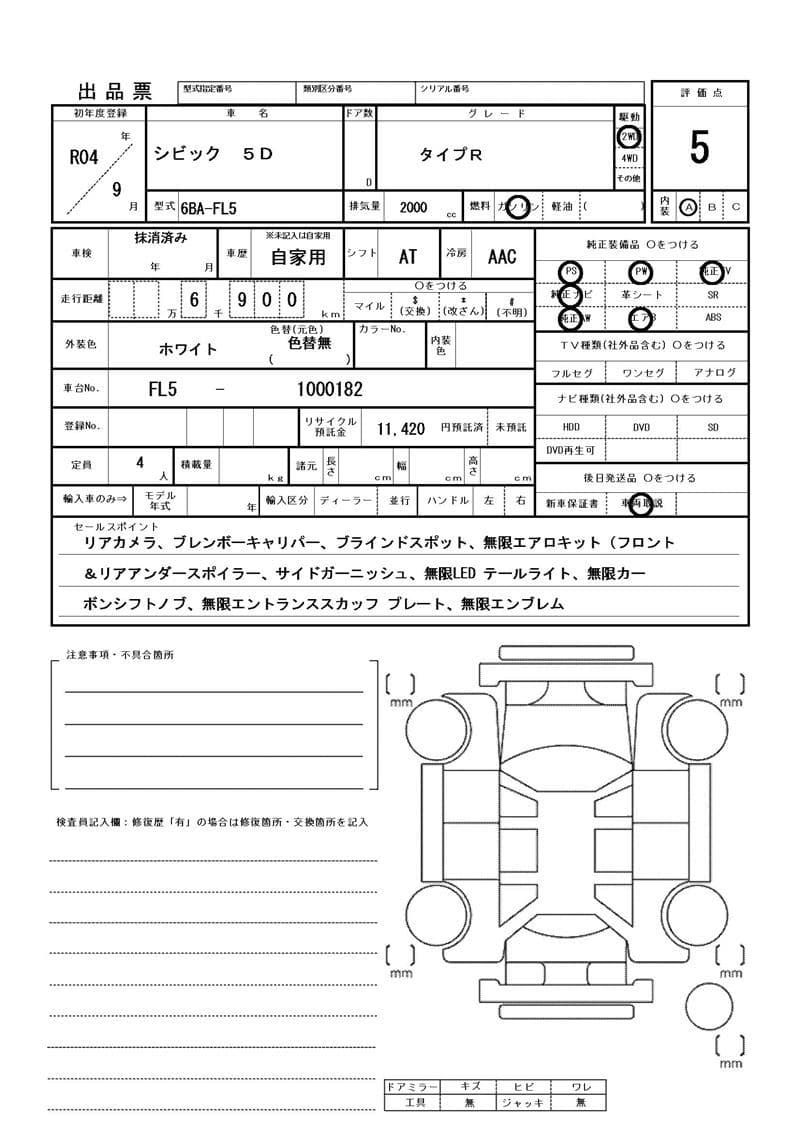 出品票 型式指定番号 類別区分番号 シリアル番号 評価点
初年度登録 車名 ドア数 グレード 駆動
R04 年 9 月 シビック 5D D タイプR 2WD 4WD その他 5
型式 6BA-FL5 排気量 2000 cc 燃料 ガソリン 軽油 ( ) 内装 A B C
車検 抹消済み 年 月 車歴 ※未記入は自家用 自家用 シフト AT 冷房 AAC
走行距離 6 万 9 千 0 0 km
〇をつける
マイル $(交換) *(改ざん) #(不明)
外装色 ホワイト 色替(元色) 色替無 ( ) カラーNo. 内装色
車台No. FL5 - 1000182
登録No. リサイクル預託金 11,420 円預託済 未預託
定員 4 人 積載量 kg 諸元 長さ cm 幅 cm 高さ cm
輸入車のみ⇒ モデル年式 年 輸入区分 ディーラー 並行 ハンドル 左 右
純正装備品 〇をつける
PS PW 純正TV
純正ナビ 革シート SR
純正AW エアB ABS
TV種類(社外品含む) 〇をつける
フルセグ ワンセグ アナログ
ナビ種類(社外品含む) 〇をつける
HDD DVD SD
DVD再生可
後日発送品 〇をつける
新車保証書 車両取説
セールスポイント
リアカメラ、ブレンボーキャリパー、ブラインドスポット、無限エアロキット（フロント
＆リアアンダースポイラー、サイドガーニッシュ、無限LED テールライト、無限カー
ボンシフトノブ、無限エントランススカッフ プレート、無限エンブレム
注意事項・不具合箇所
検査員記入欄：修復歴「有」の場合は修復箇所・交換箇所を記入
mm
mm
mm
mm
mm
ドアミラー キズ ヒビ ワレ
工具 無 ジャッキ 無